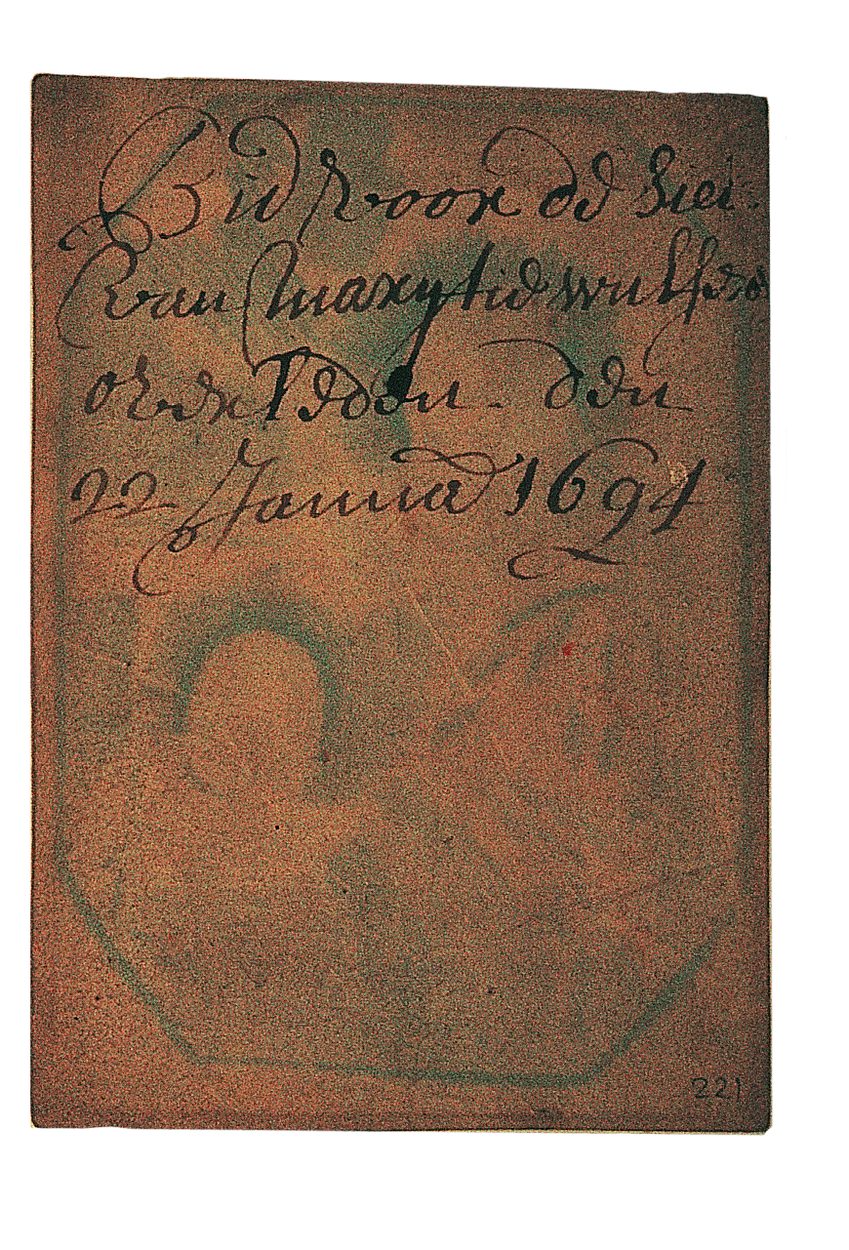 Bid voor de siel
van marytie wulfese
overleden den
22 Januari 1694
221